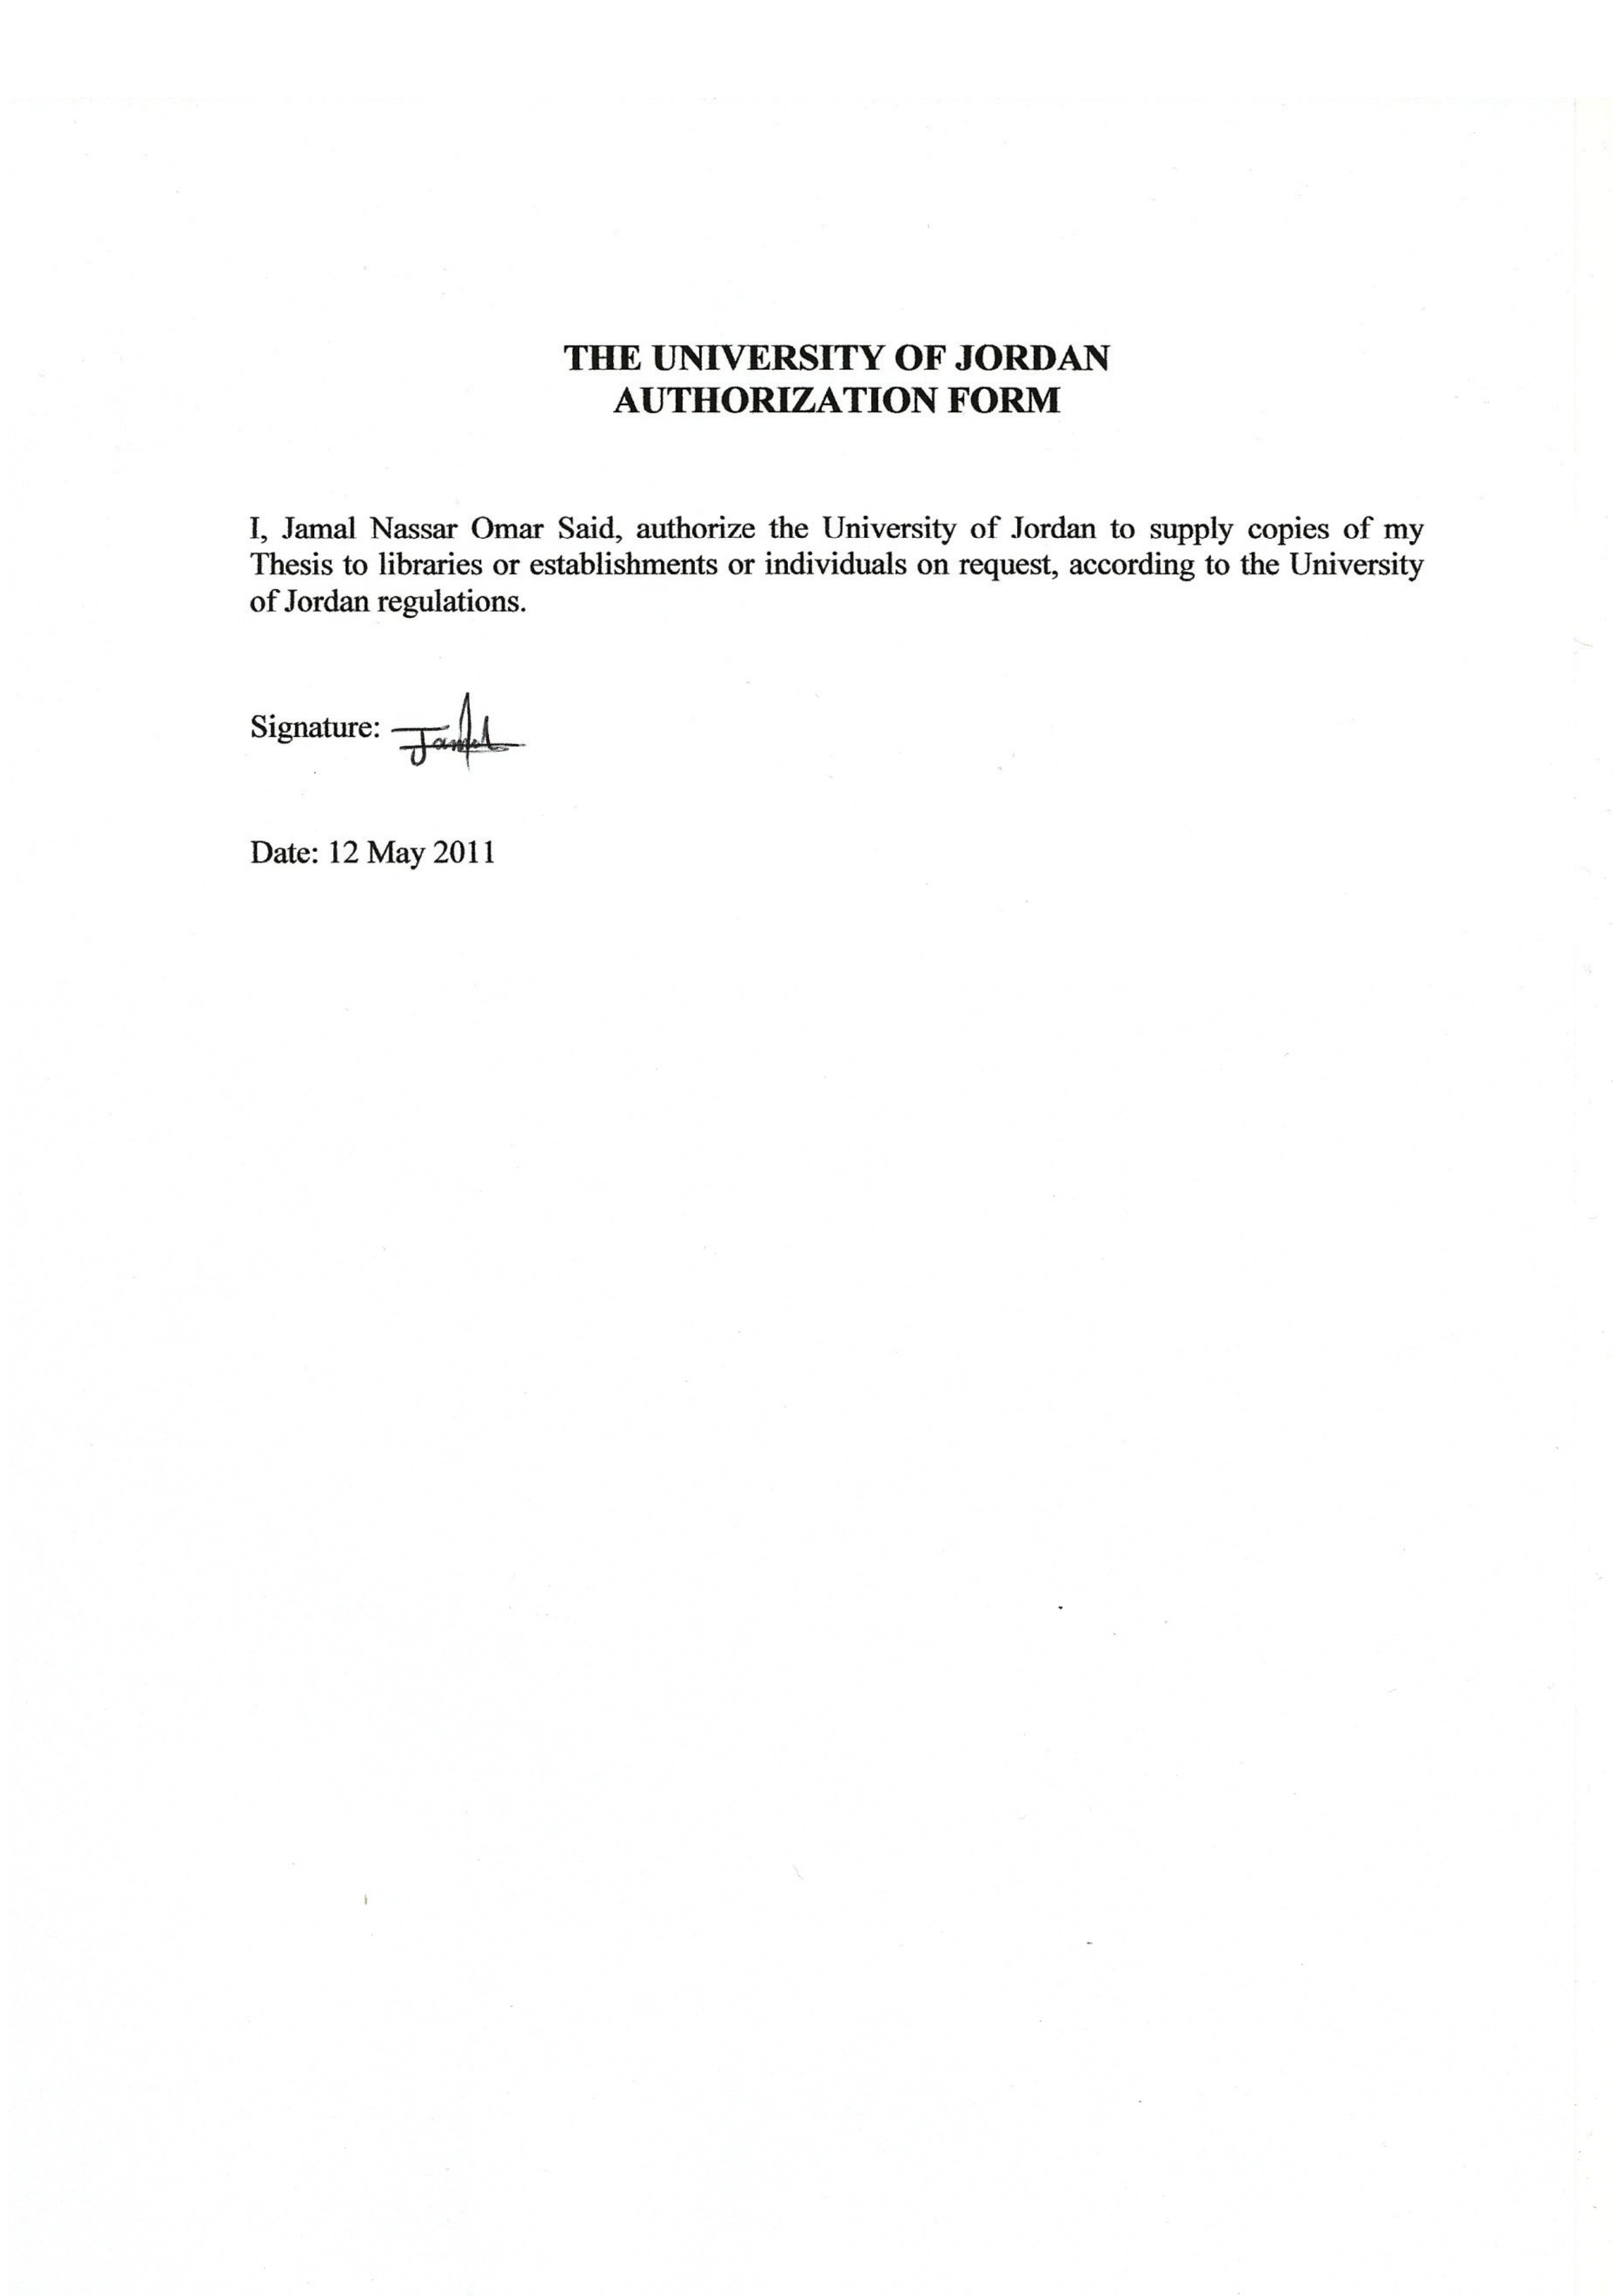 THE UNIVERSITY OF JORDAN
AUTHORIZATION FORM
I, Jamal Nassar Omar Said, authorize the University of Jordan to supply copies of my
Thesis to libraries or establishments or individuals on request, according to the University
of Jordan regulations.
Signature: Jamal
Date: 12 May 2011